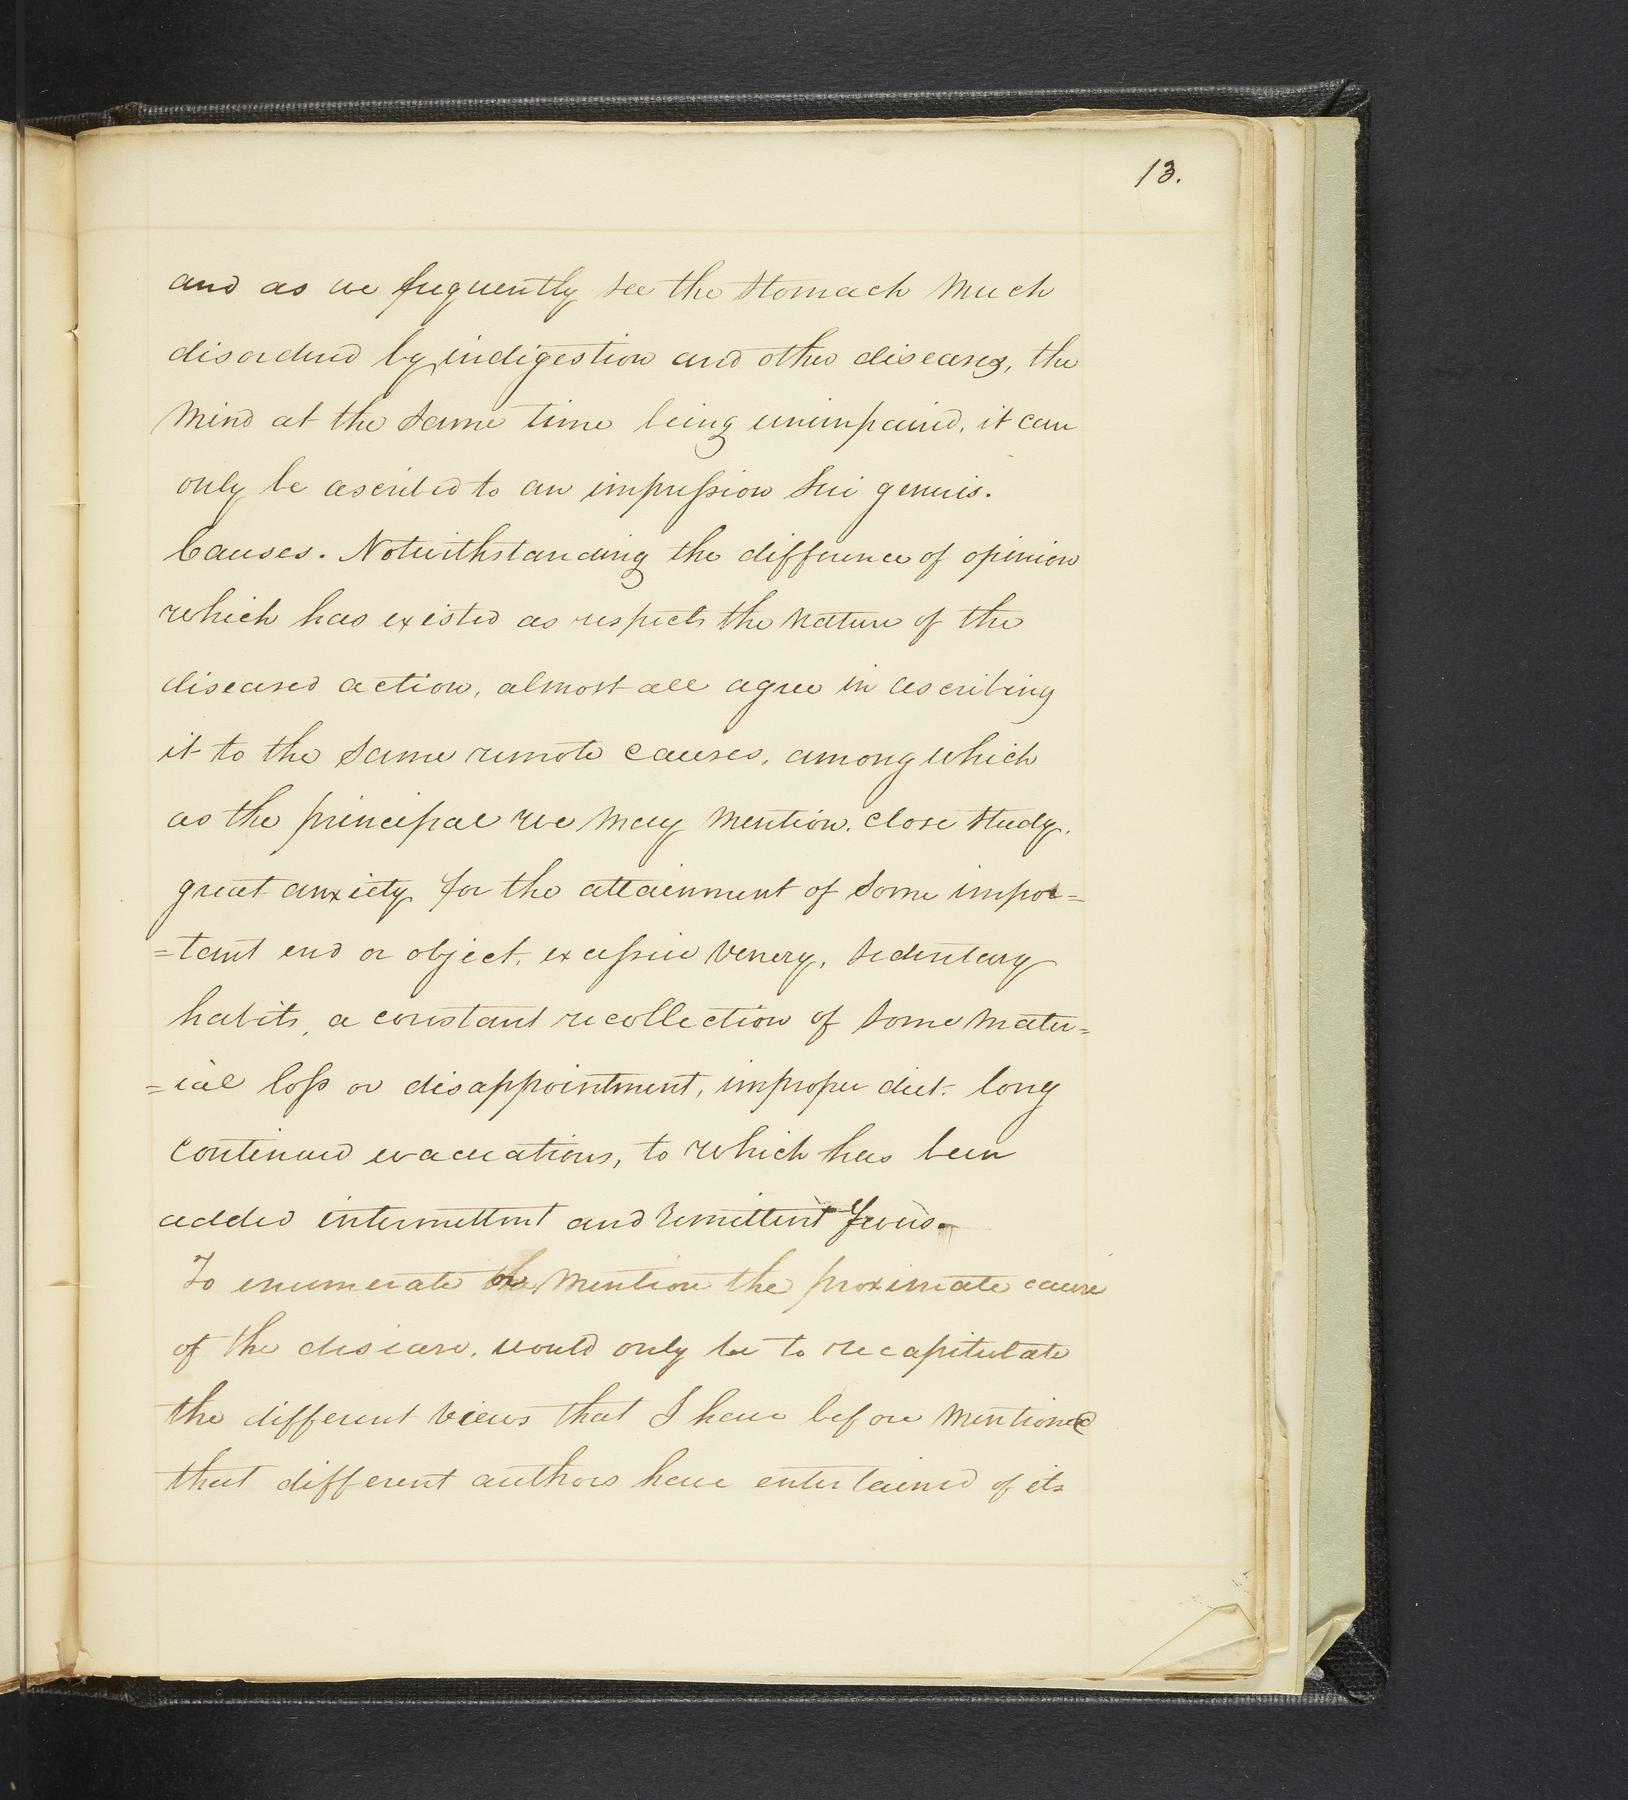 13.
and as we frequently see the Stomach Much
disordered by indigestion and other diseases, the
Mind at the Same time being unimpaired, it can
only be ascribed to an impression Sui generis.
Causes. Notwithstanding the difference of opinion
which has existed as respects the Nature of the
diseased action, almost all agree in ascribing
it to the Same remote Causes, among which
as the principal we May Mention. Close Study.
great anxiety for the attainment of Some impor=
=tant end or object, excessive Venery, Sedentary
habits, a constant recollection of Some Mater=
=ial loss or disappointment, improper diet. long
Continued evacuations, to which has been
added intermittent and Remittent Fevers.
To enumerate or Mention the proximate cause
of the disease, would only be to recapitulate
the different Views that I have before Mentioned
that different authors have entertained of its